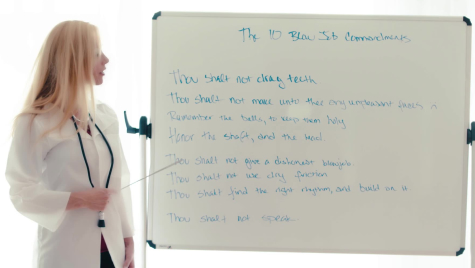 The 10 Blow Job Commandments
Thou shalt not drag teeth
Thou shalt not make unto thee any unpleasant faces
Remember the balls, to keep them holy
Honor the shaft, and the head
Thou shall not give a dishonest blowjob
Thou shalt not use clay
Thou shalt find the right rhythm, and build on it
Thou shalt not speak